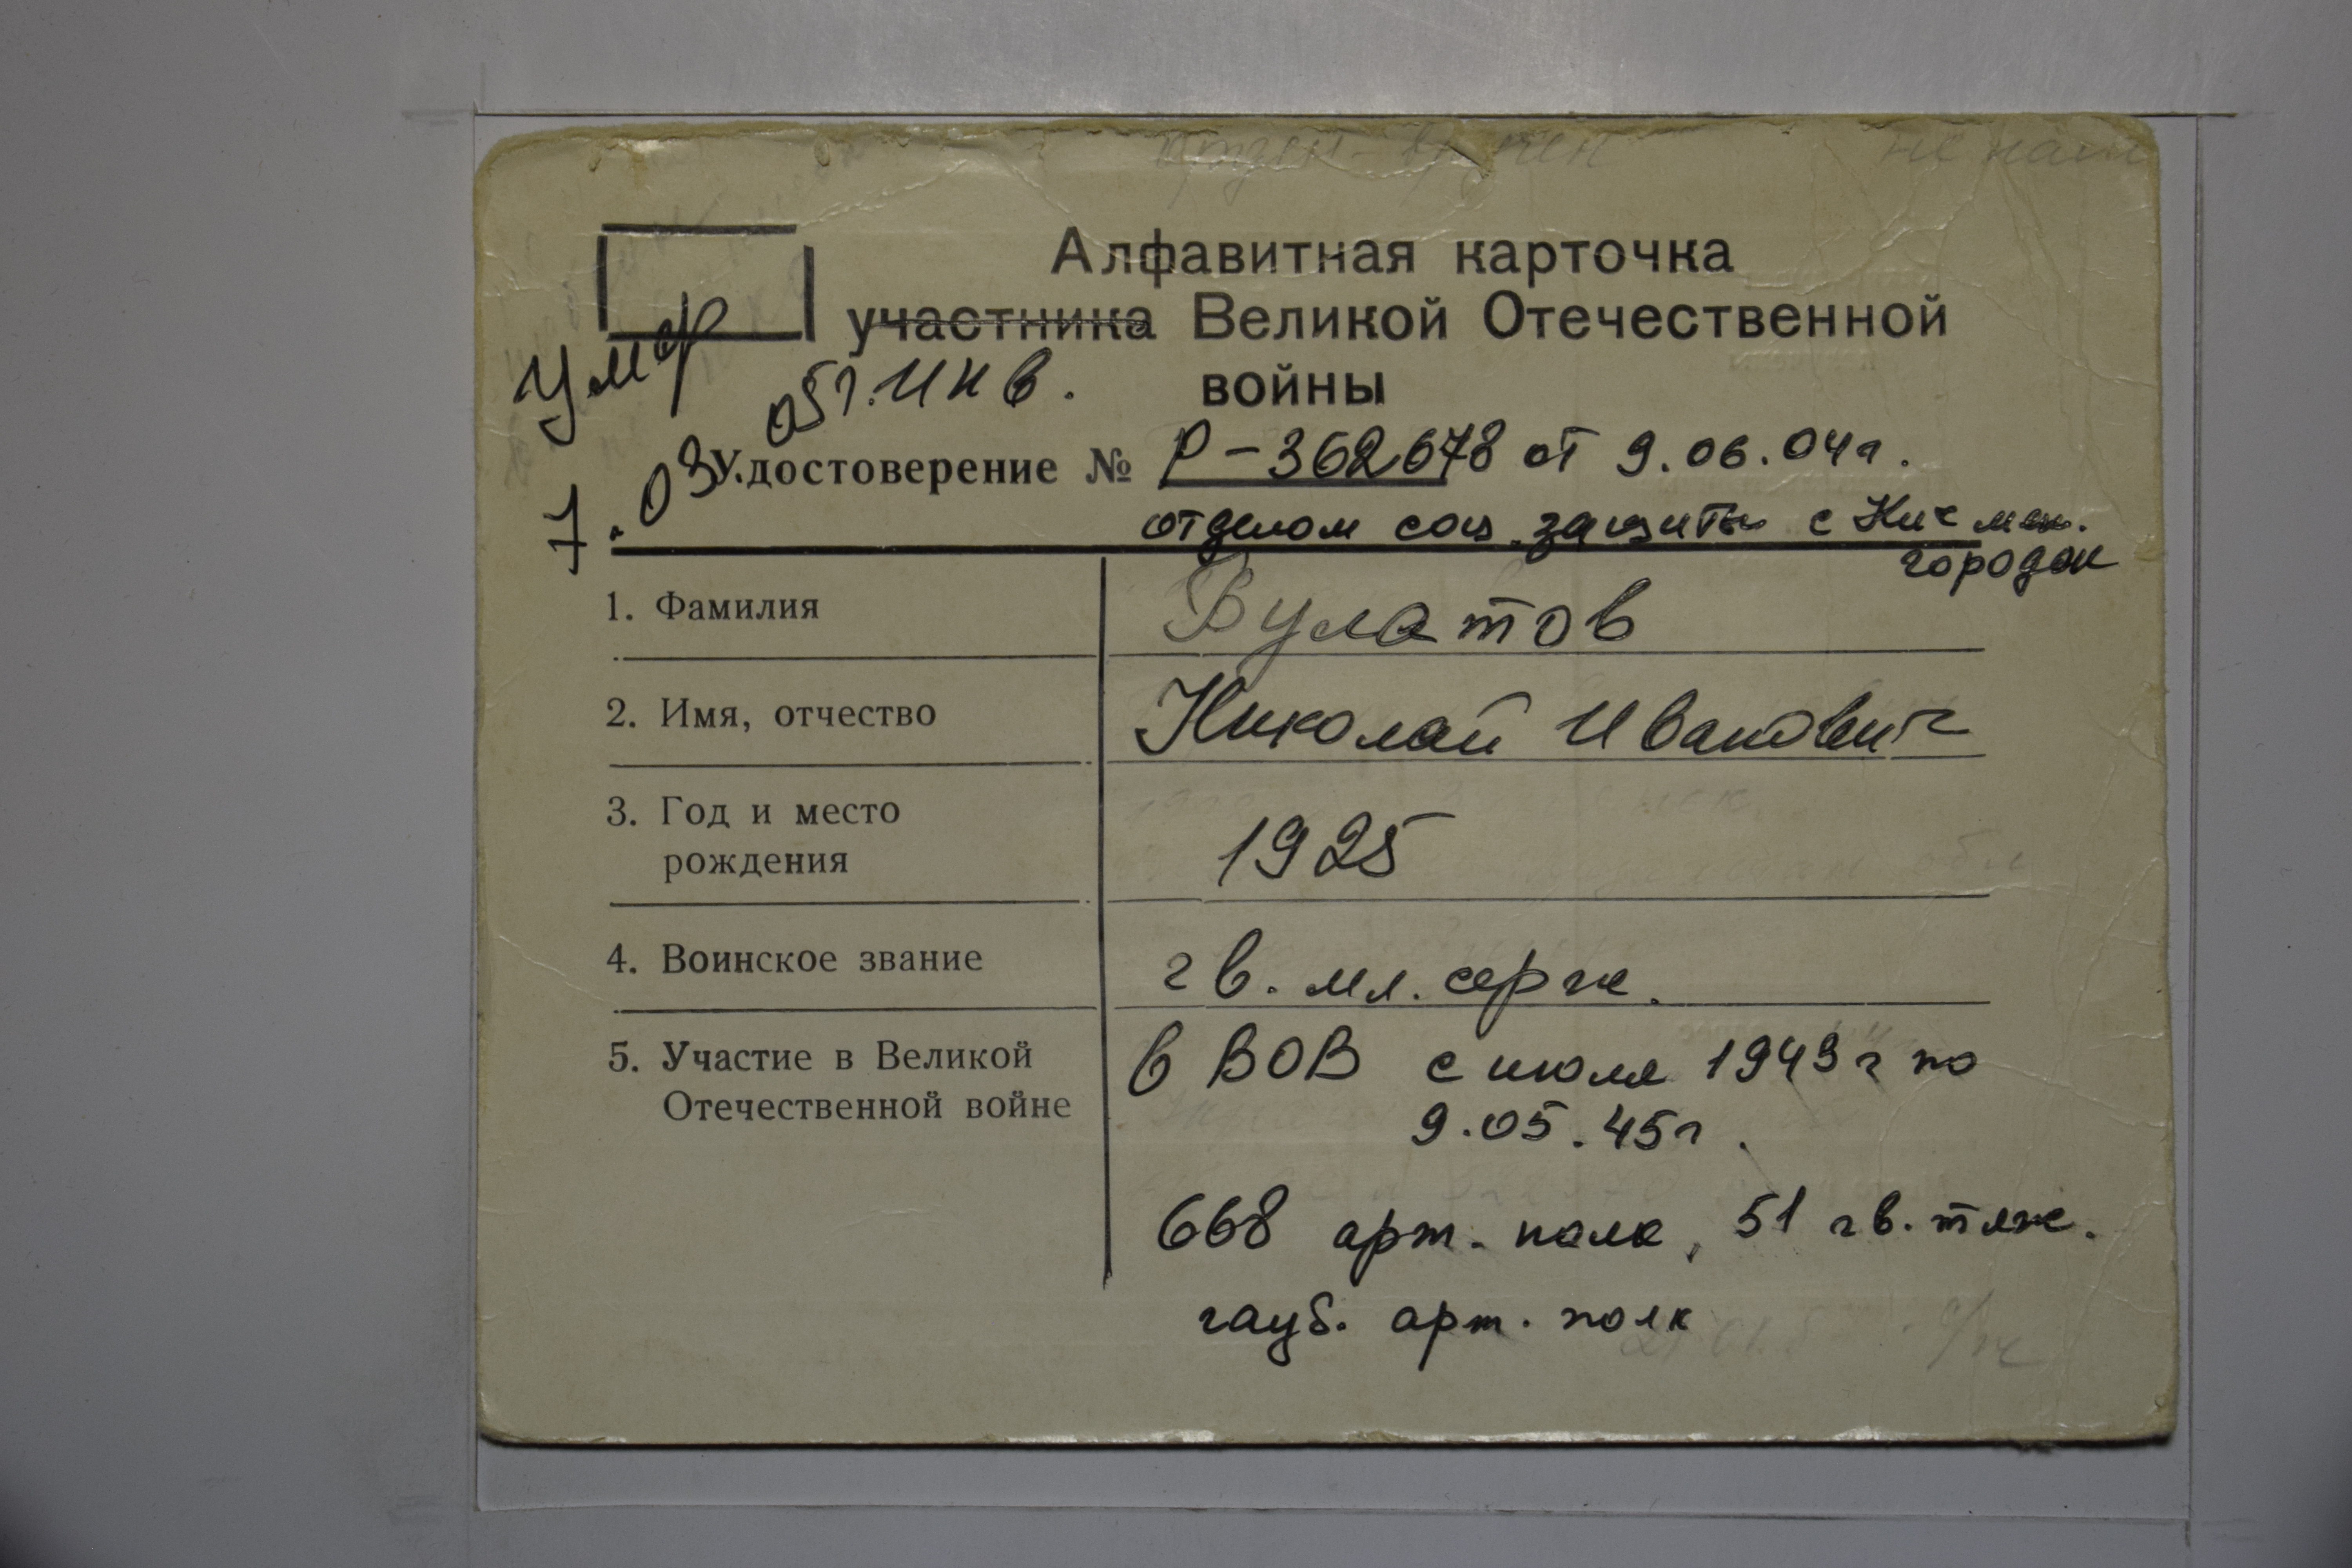 Алфавитная карточка
участника Великой Отечественной
войны
Умер 7.03.05г. инв.
Удостоверение № Р-362678 от 9.06.04г.
отделом соц. защиты с Кичмен.
городок
1. Фамилия Булатов
2. Имя, отчество Николай Иванович
3. Год и место
рождения 1925
4. Воинское звание гв. мл. серж.
5. Участие в Великой в ВОВ с июля 1943г по
Отечественной войне 9.05.45г.
668 арт. полк, 51 гв. тяж.
гауб. арт. полк